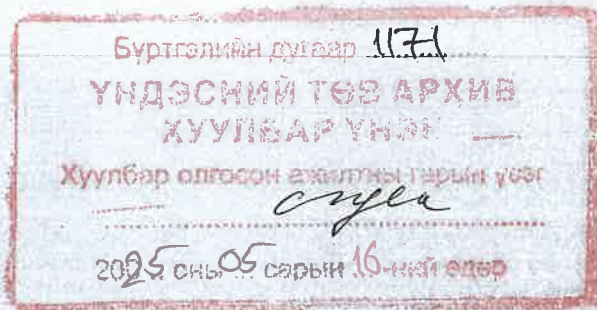 Бүртгэлийн дугаар 1171
ҮНДЭСНИЙ ТӨВ АРХИВ
ХУУЛБАР ҮНЭН
Хуулбар олгосон ажилтны гарын үсэг
2025 оны 05 сарын 16-ний өдөр